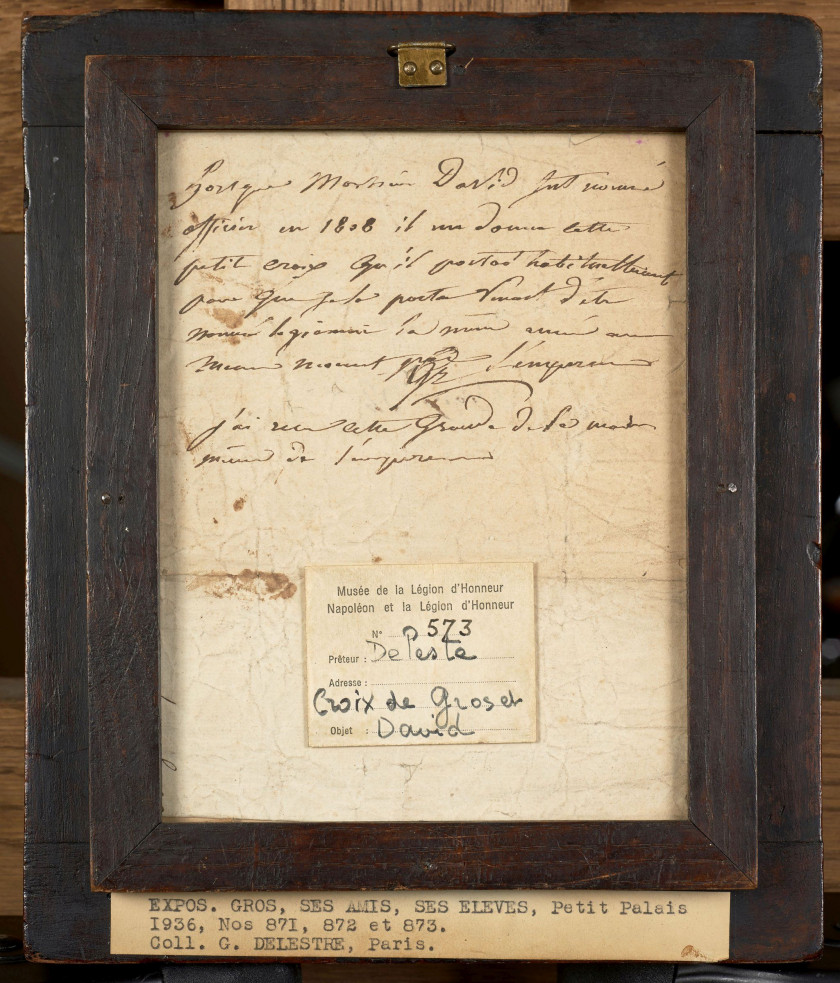 Lorsque Monsieur David fut nommé
officier en 1808 il me donna cette
petit croix qu'il portait habituellement
pour que je la porte venant d'être
nommé légionnaire la même année au
même moment par l'empereur
j'ai reçu cette grande de la main
même de l'empereur
Musée de la Légion d'Honneur
Napoléon et la Légion d'Honneur
N° 573
Prêteur : Deleste
Adresse :
Croix de Gros et
Objet : David
EXPOS. GROS, SES AMIS, SES ELEVES, Petit Palais
I936, Nos 87I, 872 et 873.
Coll. G. DELESTRE, Paris.